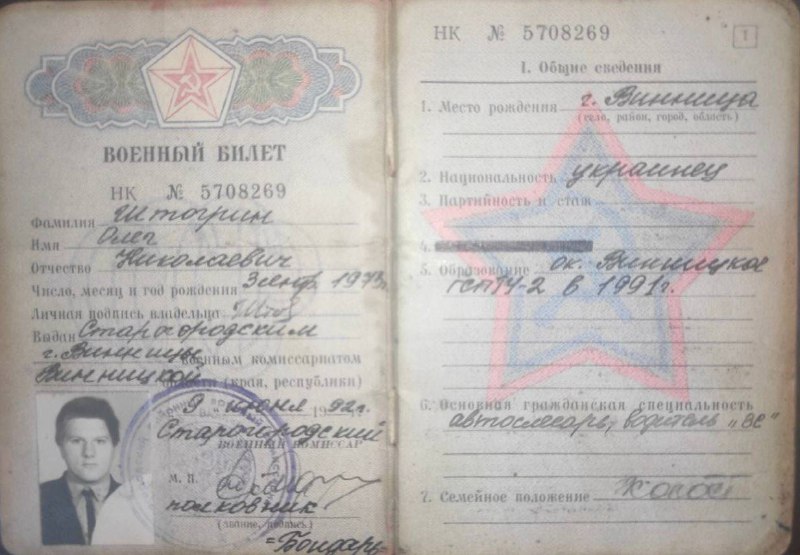 ВОЕННЫЙ БИЛЕТ
НК № 5708269
Фамилия Штогрин
Имя Олег
Отчество Николаевич
Число, месяц и год рождения 3 сент 1973г.
Личная подпись владельца
Выдан Старогородским
г. Винницы военным комиссариатом
Винницкой области (края, республики)
9 июня 1992г.
Старогородский
ВОЕННЫЙ КОМИССАР
М. П.
полковник
(звание, подпись)
=Бондарь=
НК № 5708269
1
I. Общие сведения
1. Место рождения г. Винница
(село, район, город, область)
2. Национальность украинец
3. Партийность и стаж
4.
5. Образование ок. Винницкое
в 1991г.
6. Основная гражданская специальность
автослесарь, водитель „ВС"
7. Семейное положение